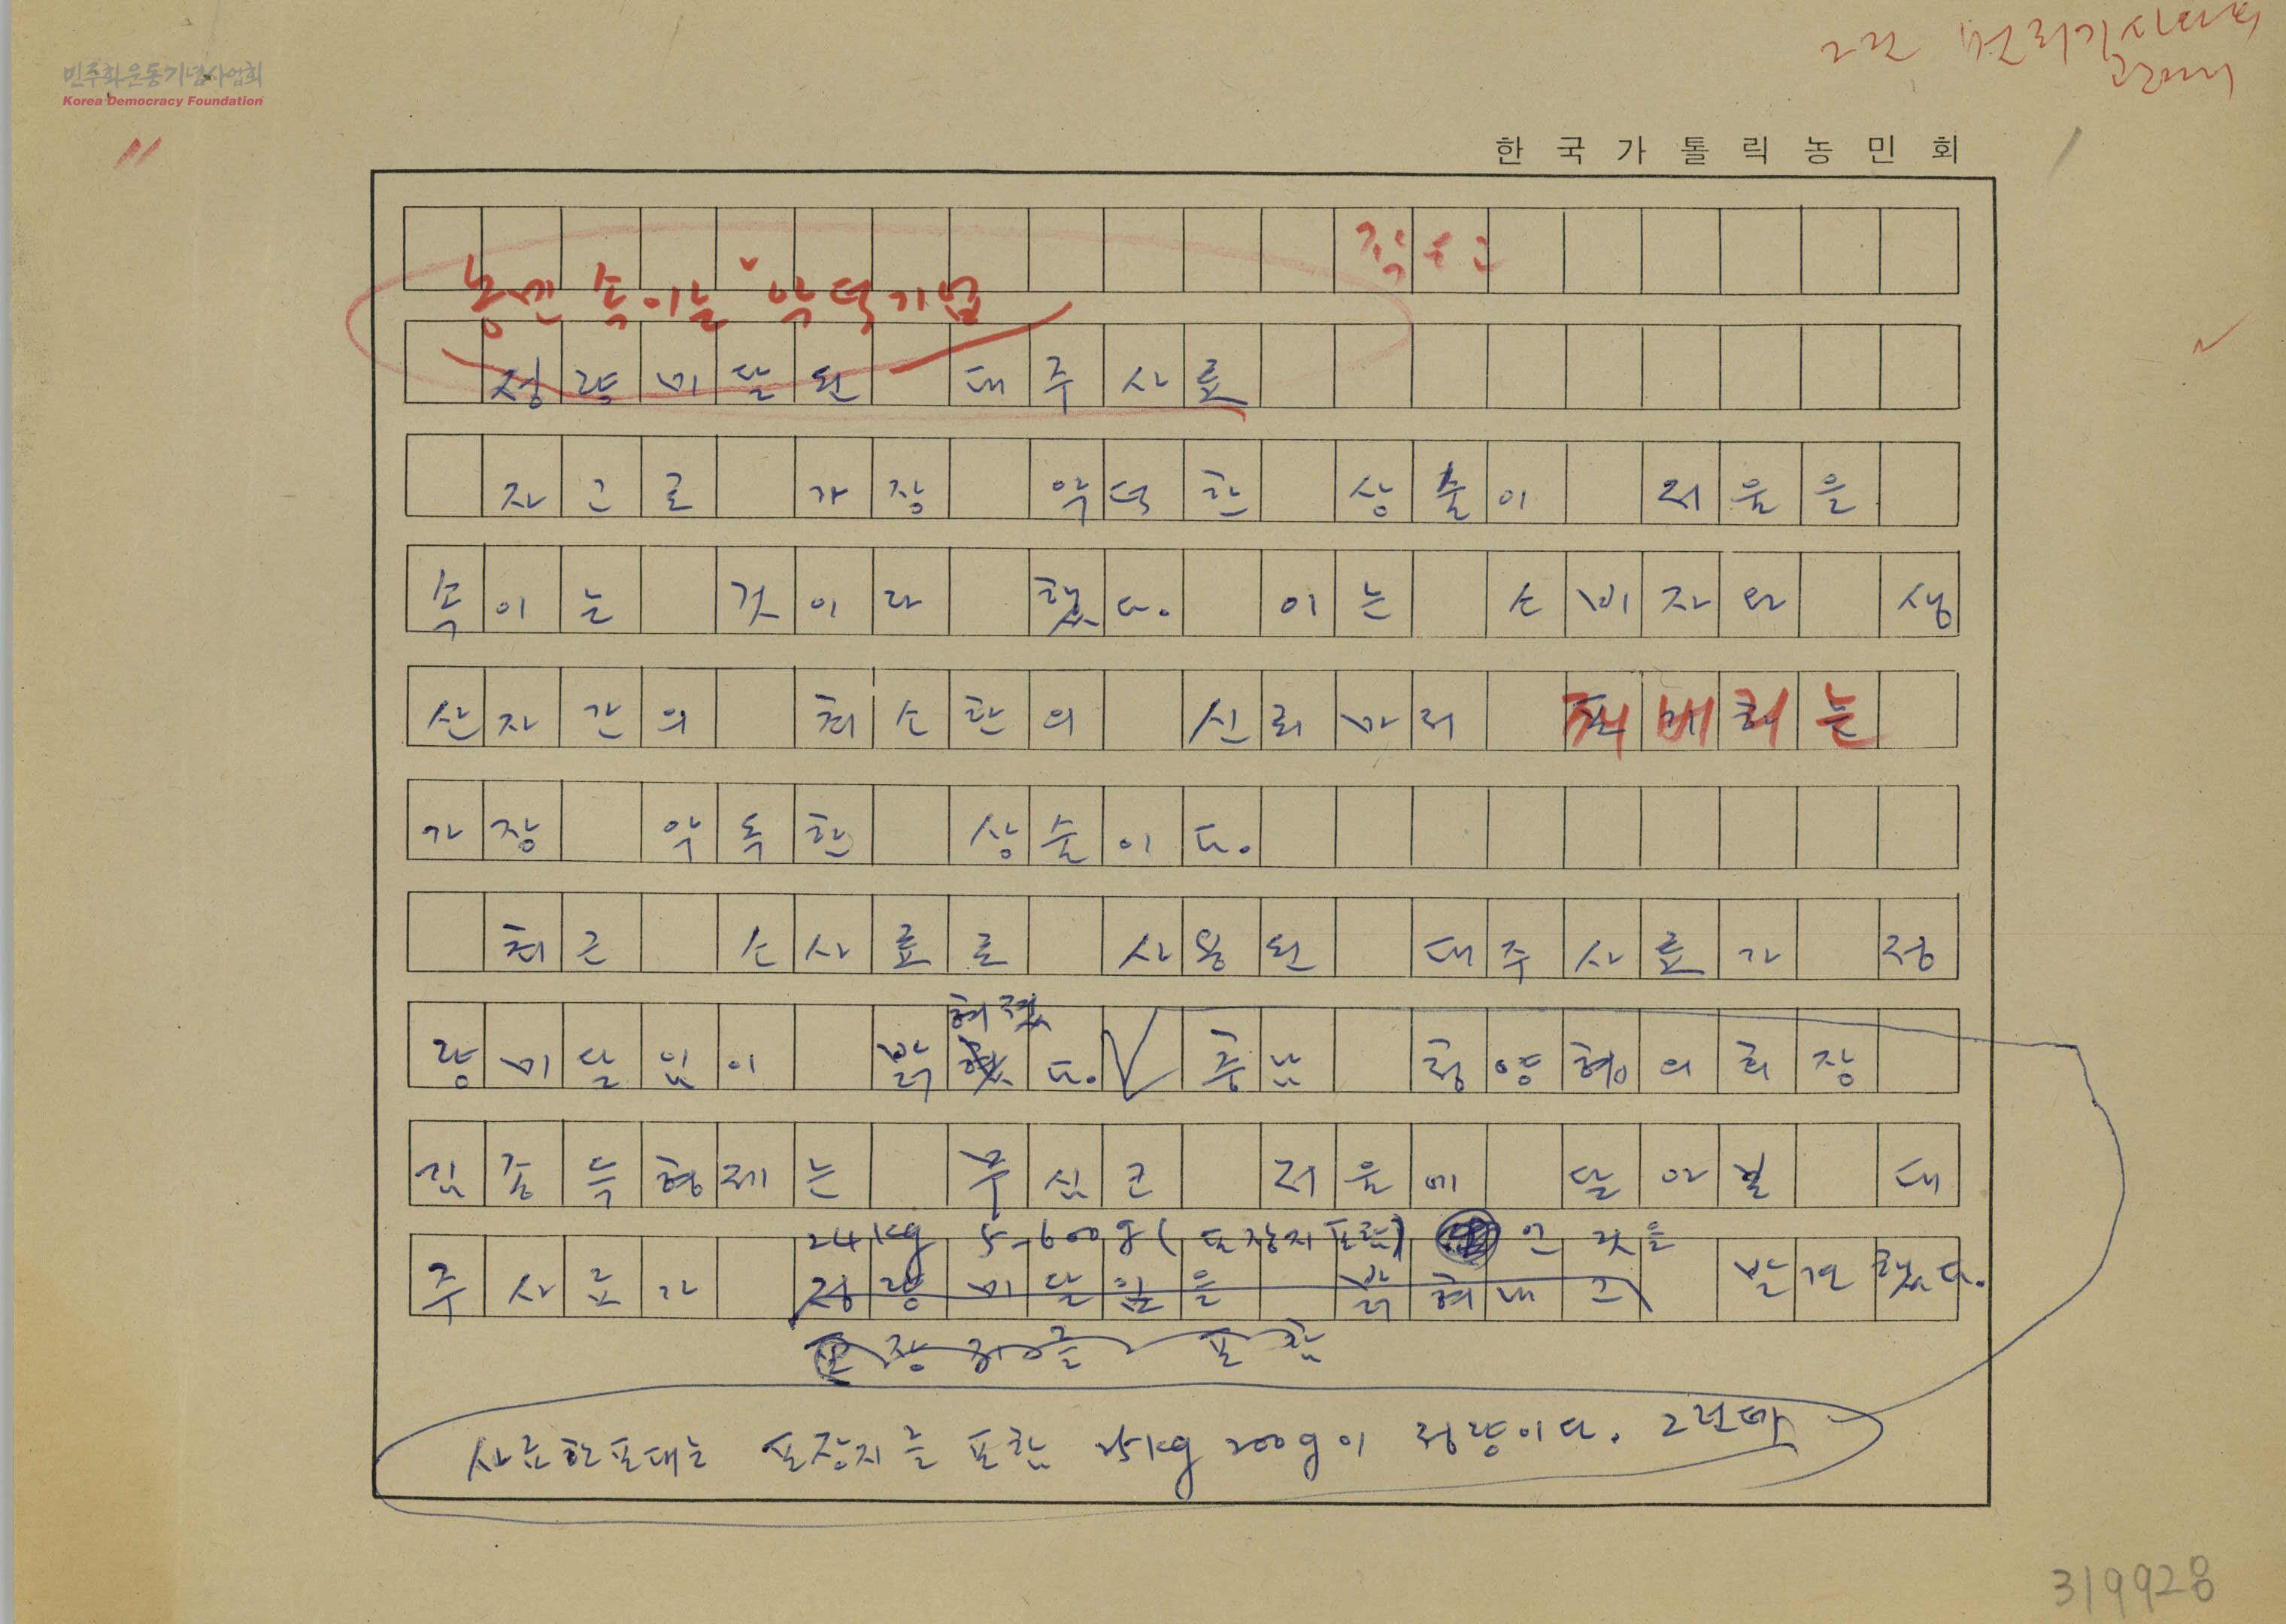 민주화운동기념사업회
Korea Democracy Foundation
한국가톨릭농민회
농민 속이는 악덕기업
정량미달된 대주사료
자고로 가장 악덕한 상술이 저울을
속이는 것이라 했다. 이는 소비자와 생
산자간의 최소한의 신뢰마저 퍠배허는
가장 악독한 상술이다.
최근 소사료로 사용된 대주사료가 정
량미달임이 밝혀졌다. 충남 청양협의회장
김종득형제는 무심코 저울에 달아본 대
24kg 5-600g(포장지포함) 인 것을
주사료가 정량미달임을 밝혀내고 발견했다.
포장지를 포함
사료한포대는 포장지를 포함 25kg 200g이 정량이다. 그런데
319928